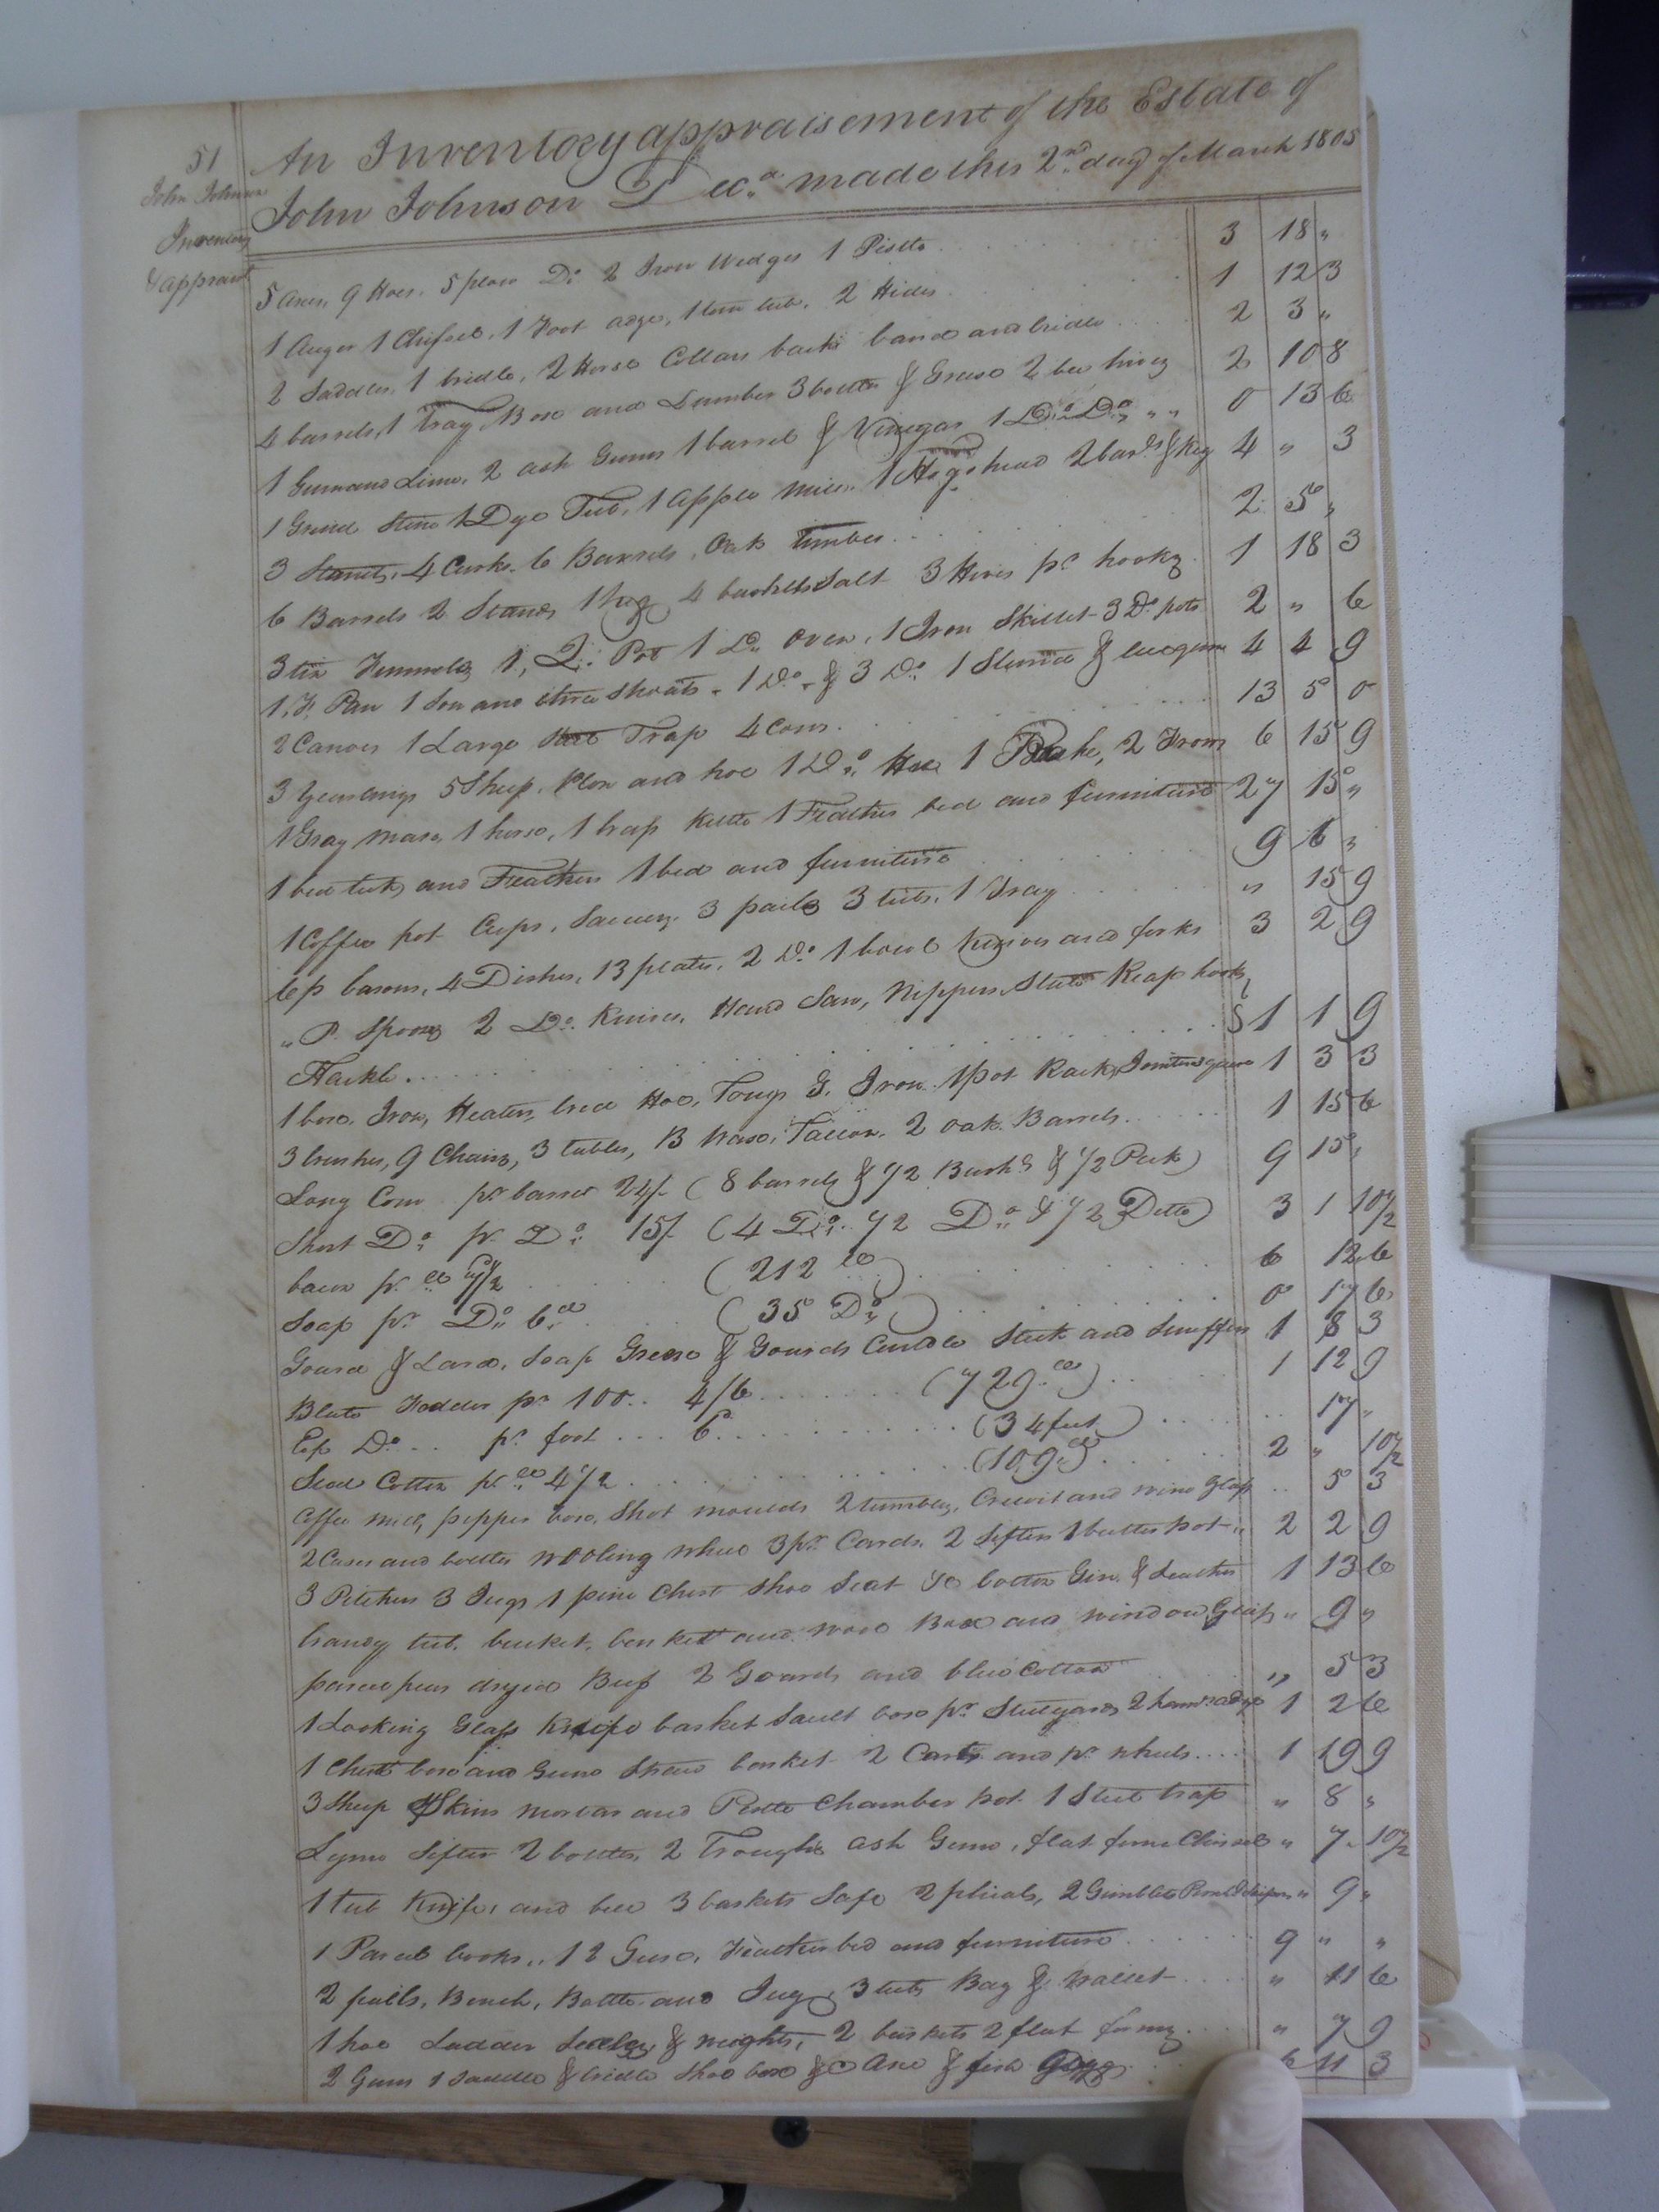 51
John Johnson
Inventory
& appraismt
An Inventory appraisement of the Estate of
John Johnson Decd. made this 2nd. day of March 1805
5 axes, 9 Hoes, 5 plow Do. 2 Iron Wedges 1 Pistto 3 18 "
1 Auger 1 Chissel, 1 Foot adze, 1 tub, 2 Hides 1 12 3
2 Saddles, 1 bridle, 2 Horse Collars back band and bridle 2 3 "
4 barrels, 1 Tray Box and Lumber 3 bottles & Grease 2 bee hives 2 10 8
1 Gum and Lime, 2 ash Gums 1 barrel & Vinegar 1 Do. Do. " " 0 13 6
1 Grind Stone 1 Dye Tub, 1 Apple Mill, 1 Hogshead 2 bars. & Keg 4 " 3
3 Stands, 4 Casks, 6 Barrels, Oak timber 2 5 "
6 Barrels 2 Stands 1 keg 4 bushels Salt 3 Hives pr hooks 1 18 3
3 tin Funnels 1, Do. Pot 1 Do. Oven, 1 Iron Skillet 3 Do. pots 2 " 6
1 F. Pan 1 Sow and three Shoats, 1 Do. & 3 Do. 1 Stand & 4 4 9
2 Canoes 1 Large Trap 4 Cows 13 5 0
3 Yearlings 5 Sheep, Plow and hoe 1 Do. Hoe 1 Rake, 2 6 15 9
1 Gray Mare, 1 horse, 1 brass Kettle 1 Feather bed and furniture 27 15 "
1 bed tick and Feathers 1 bed and furniture 9 6 "
1 Coffee pot Cups, Saucers, 3 pails 3 tubs, 1 Tray " 15 9
6 p basons, 4 Dishes, 13 plates, 2 Do. 1 bowl knives and forks 3 2 9
" P. Spoons 2 Do. Knives, Hand Saw, Nippers, Slate Reap hooks
Hackle 1 1 9
1 box, Iron, Heaters, Hoe, Tongs G. Iron 1 pot Rack, 1 3 3
3 brushes, 9 Chairs, 3 tables, B Wax, Tallow, 2 oak Barrels 1 15 6
Long Corn pr barrel 24/- (8 barrels & 1/2 Bushs & 1/2 Peck) 9 15 "
Short Do. pr Do. 15/- (4 Do. 1/2 Do. & 1/2 Ditto) 3 1 10 1/2
bacon pr lb 7 1/2 (212 lb) 6 12 6
Soap pr Do. 6d (35 Do.) 0 17 6
Gourd & Lard, Soap Grease & Gourds Candle Stick and Snuffers 1 8 3
Blade Fodder pr 100 4/6 (729 lb) 1 12 9
Do. pr foot 6d (34 feet) 17 "
Seed Cotton pr lb 4 1/2 (109 lb) 2 " 10 1/2
Coffee mill, pepper box, Shot moulds 2 tumblers, Crewit and wine Glass 5 3
2 Cases and bottles wooling wheel 3 pr Cards, 2 Sifters 1 butter pot 2 2 9
3 Pitchers 3 Jugs 1 pine Chest Shoe Seat cotton Gin & Leather 1 13 6
brandy tub, bucket, basket and wood Box and window Glass " 9 "
parcel peas dryed Beef 2 Gourds and blue Cotton " 5 3
1 Looking Glass Knife basket Sault box pr Stillyards, 2 hand saws 1 2 6
1 Chest box and Gums Straw basket 2 Carts and pr wheels 1 19 9
3 Sheep Skins mortar and Pestle Chamber pot 1 Steel trap " 8 "
Lyme Sifter 2 bottles, 2 Troughs ash Gums, flat form Chissel " 7 10 1/2
1 tub Knife, and bed 3 baskets Safe 2 phials, 2 Gimblets " 9 "
1 Parcel books, 12 Geese, Feather bed and furniture 9 " "
2 pails, Bench, Bottle and Jug, 3 tubs Bag & Wallet " 11 6
1 hoe Ladder Scales & weights, 2 baskets 2 flat forms " 7 9
2 Guns 1 saddle & bridle Shoe box & Axe & fish 11 3